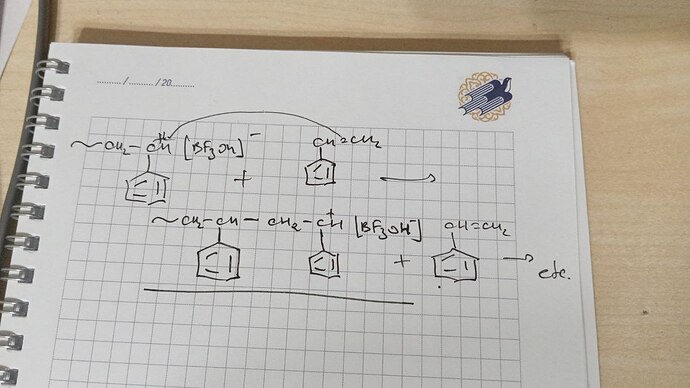 ........... / ........... / 20...........
~ CH₂ - CH⁺ [BF₃OH]⁻ + CH=CH₂ →
~ CH₂ - CH - CH₂ - CH⁺ [BF₃OH⁻] + CH=CH₂ → etc.